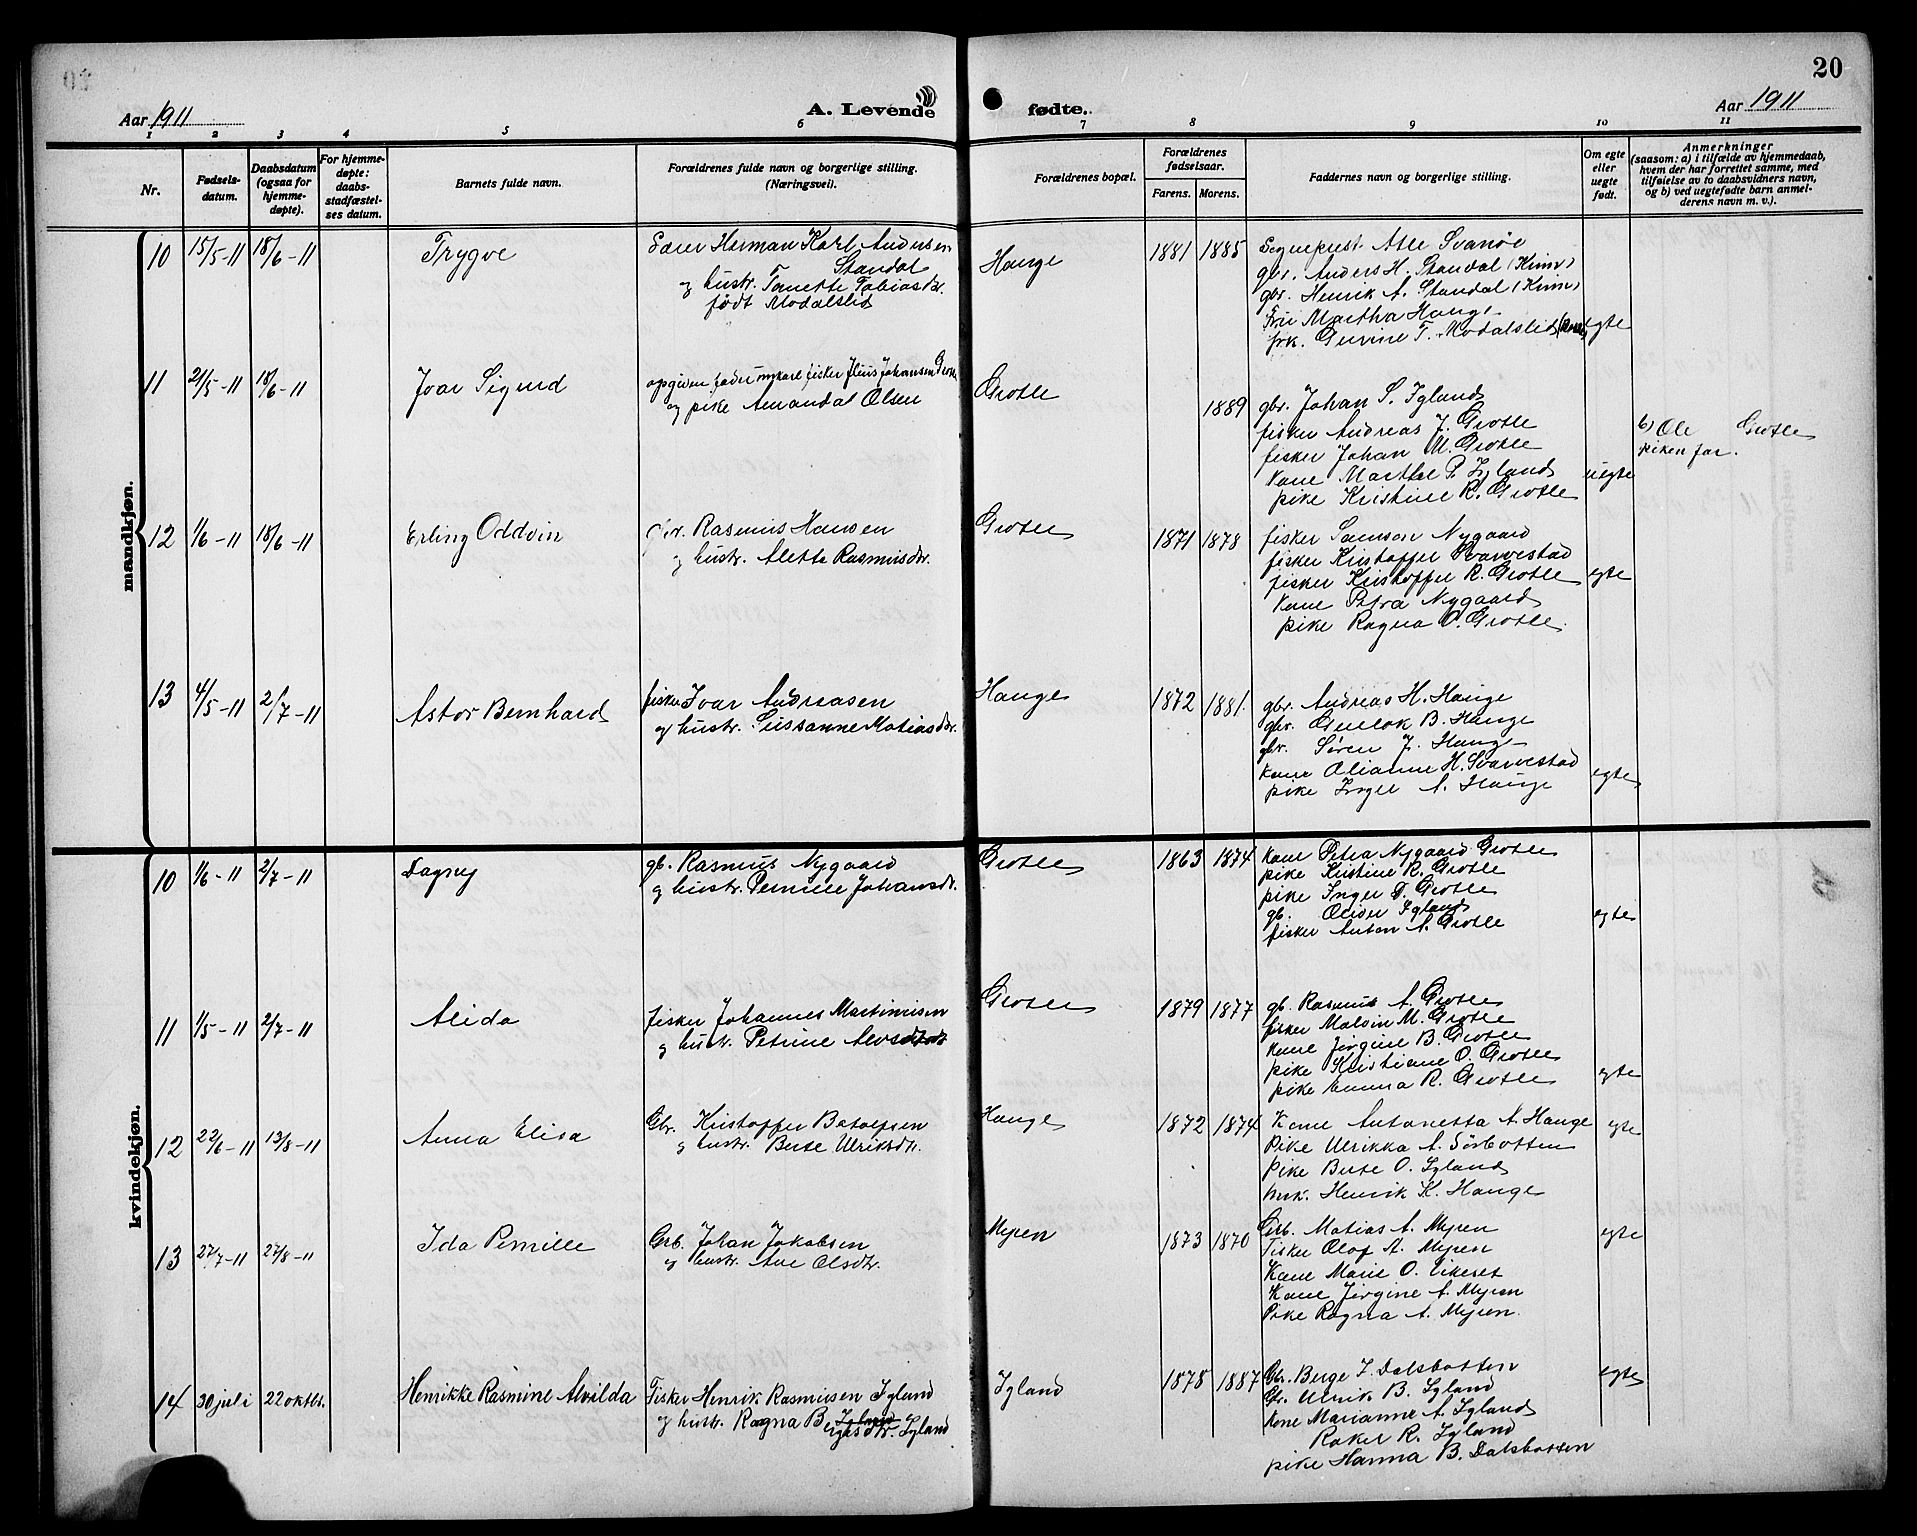 20
Aar 1911
A. Levende fødte.
Aar 1911
1 2 3 4 5 6 7 8 9 10 11
Nr.
Fødsels-
datum.
Daabsdatum
(ogsaa for
hjemme-
døpte).
For hjemme-
døpte:
daabs-
stadfæstel-
ses datum.
Barnets fulde navn.
Forældrenes fulde navn og borgerlige stilling.
(Næringsveil).
Forældrenes bopæl.
Forældrenes
fødselsaar.
Farens. Morens.
Faddernes navn og borgerlige stilling.
Om egte
eller
uegte
født.
Anmerkninger
(saasom: a) i tilfælde av hjemmedaab,
hvem der har forrettet samme, med
tilføielse av to daabsvidners navn,
og b) ved uegtefødte barn anmel-
derens navn m. v.).
mandkjøn.
10 15/5-11 18/6-11 Trygve
Herman Karl Andersen
Standal
og hustr. Tanette Tobiasdr.
født Modalslid
Hauge 1881 1885
Sogneprest Atle Svanøe
gbr. Anders H. Standal (Kinn)
gbr. Henrik A. Standal (Kinn)
Fru Martha Hauge
frk. Gurine T. Modalslid
egte
11 21/5-11 18/6-11 Ivar Sigurd
opgiven fader ungkarl fisker Julius Johansen Grotle
og pike Amandal Olsen
Grotle 1889
gbr. Johan S. Igland
fisker Andreas J. Grotle
fisker Johan M. Grotle
Kone Marthe P. Igland
pike Kristine R. Grotle
uegte
b) Ole Grotle
piken far.
12 1/6-11 18/6-11 Erling Oddvin
gbr. Rasmus Hansen
og hustr. Alette Rasmusdr.
Grotle 1871 1878
fisker Samson Nygaard
fisker Kristoffer Svarvestad
fisker Kristoffer R. Grotle
Kone Petra Nygaard
pike Ragna O. Grotle.
egte
13 4/5-11 2/7-11 Astor Bernhard
fisker Ivar Andreasen
og hustr. Sussanne Matiasdr.
Hauge 1872 1881.
gbr. Andreas H. Hauge
gbr. Gullak B. Hauge
gbr. Søren J. Hauge
Kone Olianne H. Svarvestad
pike Inger A. Hauge
egte
kvindekjøn.
10 1/6-11 2/7-11 Dagny
gb. Rasmus Nygaard
og hustr. Pernille Johansdr.
Grotle 1863 1874
Kone Petra Nygaard Grotle
pike Kristine R. Grotle
pike Inger D. Grotle
gb. Oliver Igland
fisker Anton A. Grotle
egte
11 1/5-11 2/7-11 Alida
fisker Johannes Martinusen
og hustr. Petrine
Grotle 1879 1877
gb. Rasmus A. Grotle
fisker Malvin M. Grotle
Kone Jørgine B. Grotle
pike Kristiane O. Grotle
pike Emma R. Grotle
egte
12 22/6-11 13/8-11 Anna Elisa
Gbr. Kristoffer Botolfsen
og hustr. Berte Ulriksdtr.
Hauge 1872 1874
Kone Antonetta A. Hauge
Pike Ulrikka A. Sørbotten
Pike Berte O. Igland
Henrik K. Hauge
egte
13 27/7-11 27/8-11 Ida Pernille
Grb. Johan Jakobsen
og hustr. Ane Olsdtr.
Myren 1873 1870
Grb. Matias A. Myren
Fisker Olaf A. Myren
Kone Marie O. Eikeset
Kone Jørgine A. Myren
Pike Ragna A. Myren.
egte
14 30 juli 22 oktbr. Henrikke Rasmine Alvilda
Fisker Henrik Rasmusen Igland
og hustr. Ragna Bergesdtr. Igland
Igland 1878 1887
Gbr. Berge I. Dalsbotten
Gbr. Ulrik B. Igland
Kone Marianne A. Igland
R. Igland
pike Hanna B. Dalsbotten
egte